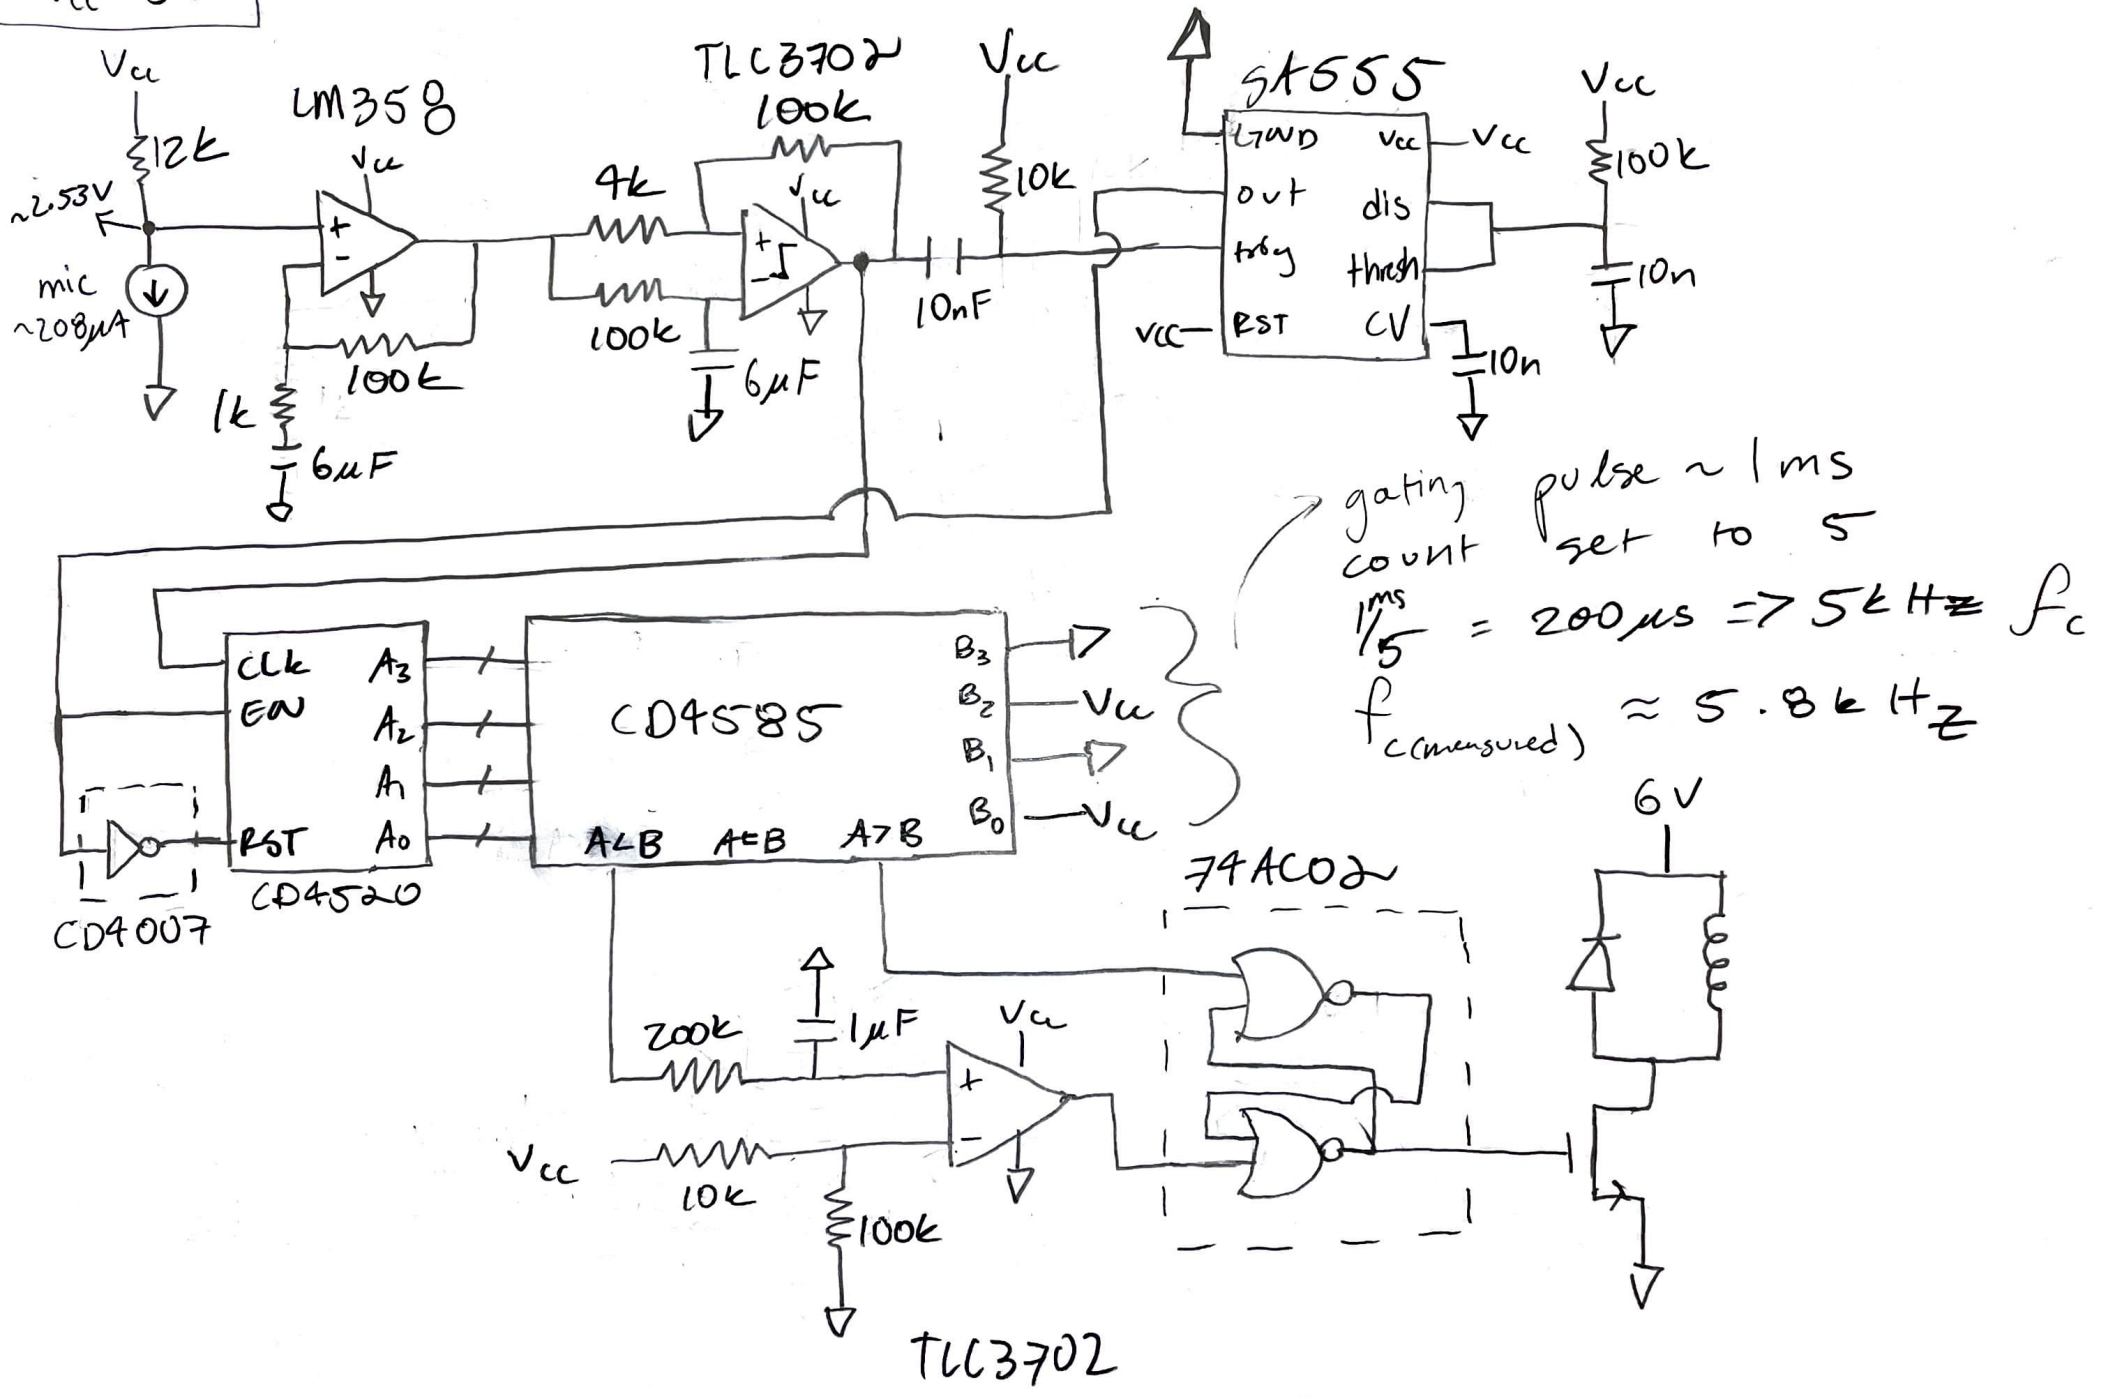 Vcc
12k
~2.53V
mic
~208μA
LM358
Vcc
+
-
100k
1k
6μF
TLC3702
100k
4k
Vcc
+
-
100k
6μF
10nF
Vcc
10k
SA555
GND
Vcc
Vcc
out
dis
trig
thresh
Vcc
RST
CV
10n
Vcc
100k
10n
gating pulse ~ 1ms
count set to 5
1ms/5 = 200μs => 5kHz fc
fc(measured) ≈ 5.8kHz
CLK
A3
EN
A2
A1
RST
A0
CD4520
CD4007
CD4585
B3
B2
Vcc
B1
B0
Vcc
A<B
A=B
A>B
200k
1μF
Vcc
+
-
Vcc
10k
100k
TLC3702
74AC02
6V